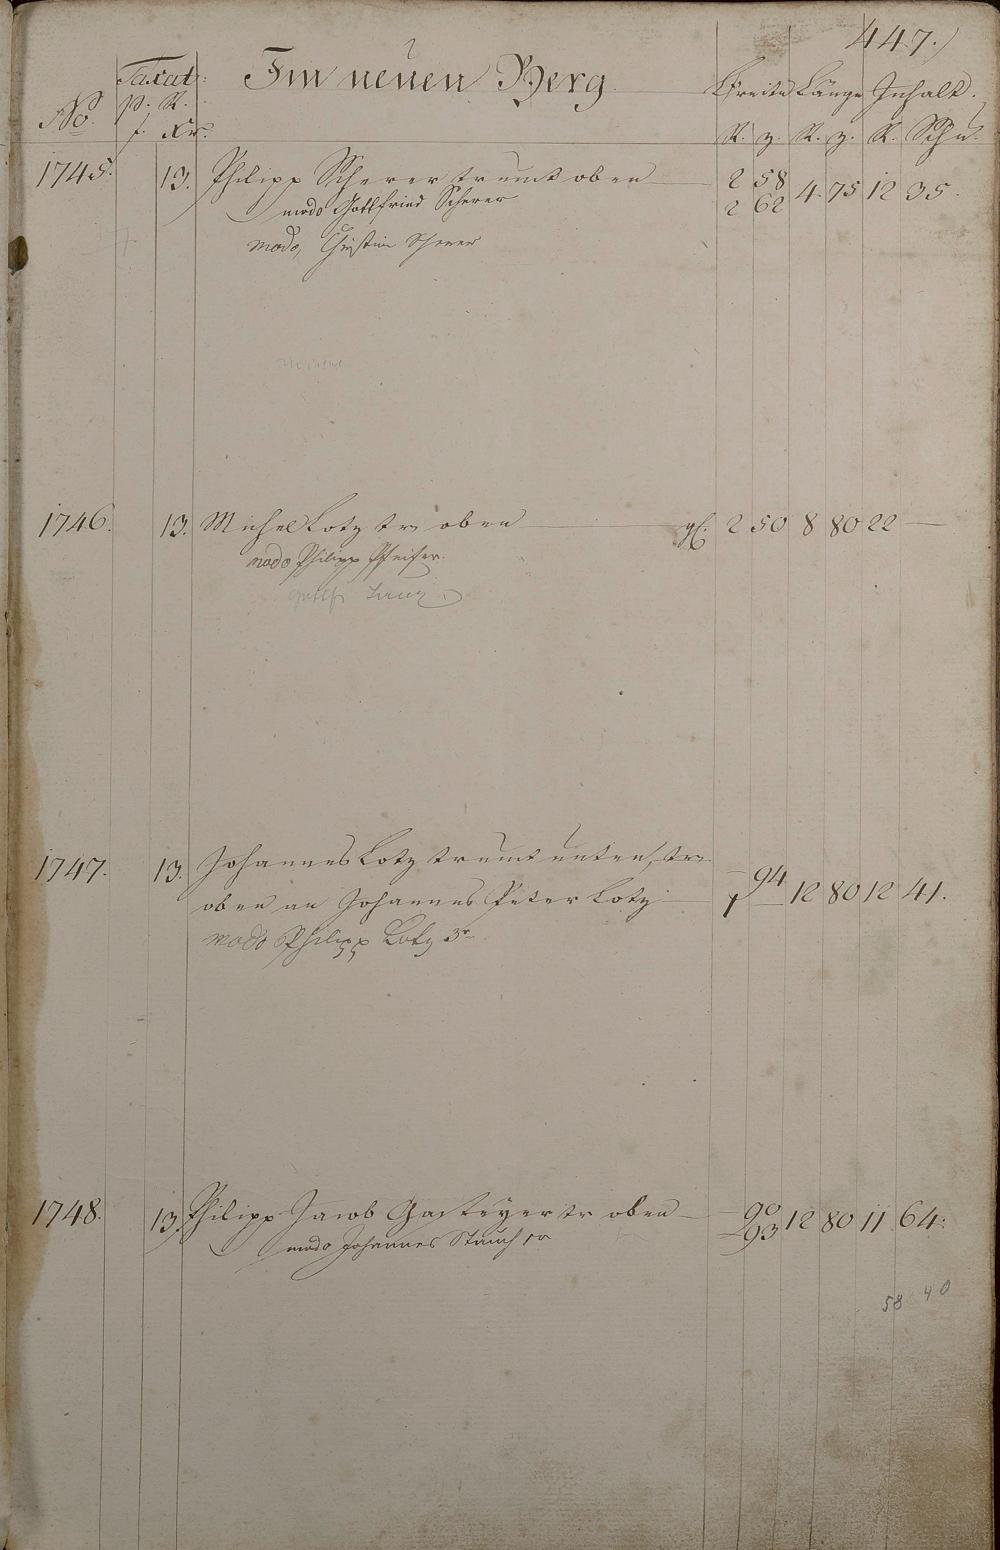 447.
Taxat: Im neuen Berg Breite Länge Inhalt.
No. p. R.
f. Xr. R. z. R. z. R. Schu.
1745. 13. Philipp Scherer trumt oben 2 58 4 75 12 35.
modo Gottfried Scherer 2 62
modo, Christian Scherer
1746. 13. Michel Lotz tr. oben gl. 2 50 8 80 22 —
modo Philipp Pfeifer.
1747. 13. Johannes Lotz trumt unten, tr. — 94 12 80 12 41.
oben an Johannes Peter Lotz 1 —
modo Philipp Lotz 3r
1748. 13. Philipp Jacob Gasteyer tr oben — 90 12 80 11 64.
modo Johannes Stauch — 93
58 40